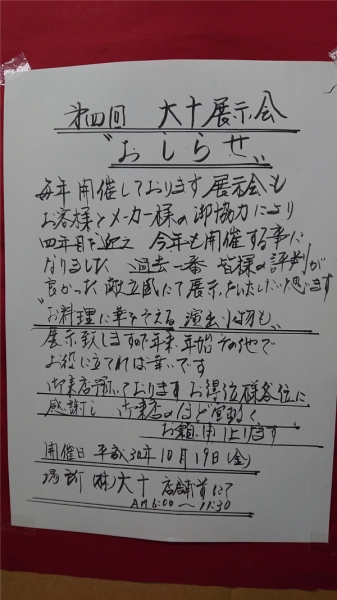 第四回 大十展示会
"おしらせ"
毎年開催しております展示会も
お客様とメーカー様の御協力により
四年目を迎え 今年も開催する事に
なりました 過去一番 皆様の評判が
良かった 敵立風にて展示をいたしたいと思います
お料理に華をそえる 演出小物も
展示致しますので年末年始その他で
お役に立てれば幸いです
御来店頂いております お得位様各位に
感謝し 御来店のほど宜敷く
お願い申し上げます
開催日 平成30年10月19日(金)
場所 (株)大十 店舗前にて
AM6:00〜11:30